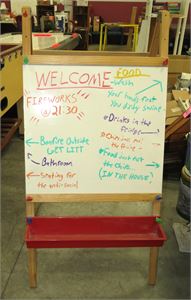 WELCOME
FOOD
-Wash
Your hands first
You dirty swine
FIREWORKS
@ 21:30
Drinks in the
fridge
Bonfire Outside
GET LIT!
Bathroom
Seating for
the antisocial
Food just not
the Chili...
(IN THE HOUSE)